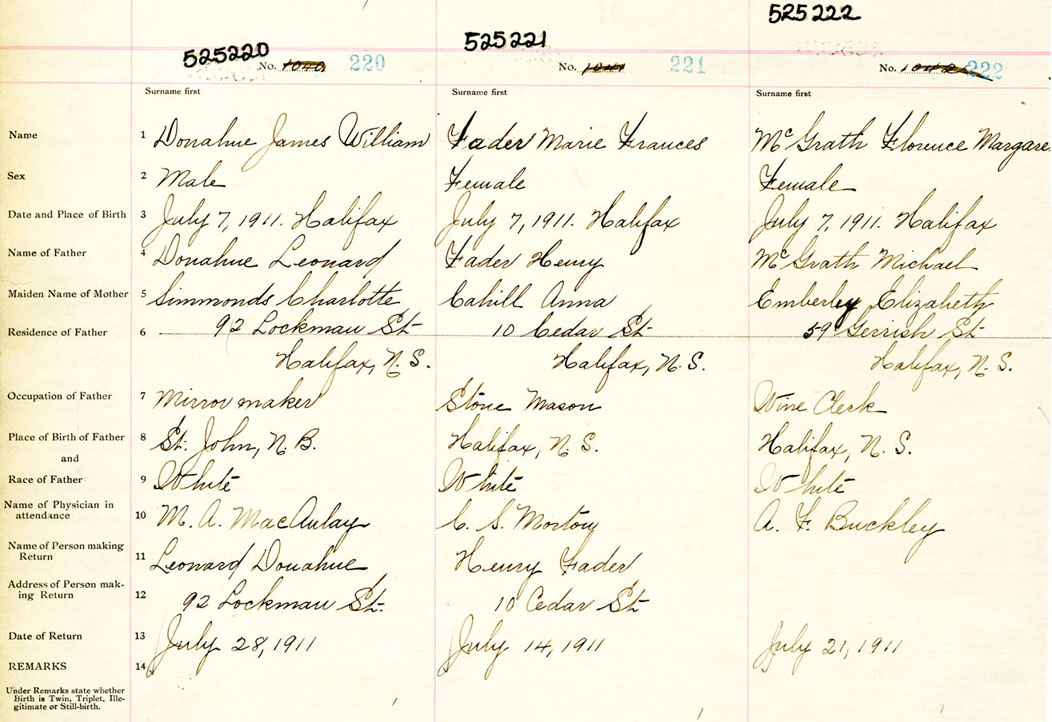 525220 525221 525222
No. 1040 220 No. 1041 221 No. 1042 222
Surname first Surname first Surname first
Name 1 Donahue James William Fader Marie Frances McGrath Florence Margare
Sex 2 Male Female Female
Date and Place of Birth 3 July 7, 1911. Halifax July 7, 1911. Halifax July 7, 1911. Halifax
Name of Father 4 Donahue Leonard Fader Henry McGrath Michael
Maiden Name of Mother 5 Simmonds Charlotte Cahill Anna Emberley Elizabeth
Residence of Father 6 92 Lockman St. 10 Cedar St. 59 Gerrish St.
Halifax, N.S. Halifax, N.S. Halifax, N.S.
Occupation of Father 7 Mirror maker Stone Mason Wine Clerk
Place of Birth of Father 8 St. John, N.B. Halifax, N.S. Halifax, N.S.
and
Race of Father 9 White White White
Name of Physician in
attendance 10 M. A. MacAulay C. S. Morton A. F. Buckley
Name of Person making
Return 11 Leonard Donahue Henry Fader
Address of Person mak-
ing Return 12 92 Lockman St. 10 Cedar St.
Date of Return 13 July 28, 1911 July 14, 1911 July 21, 1911
REMARKS 14
Under Remarks state whether
Birth is Twin, Triplet, Ille-
gitimate or Still-birth.